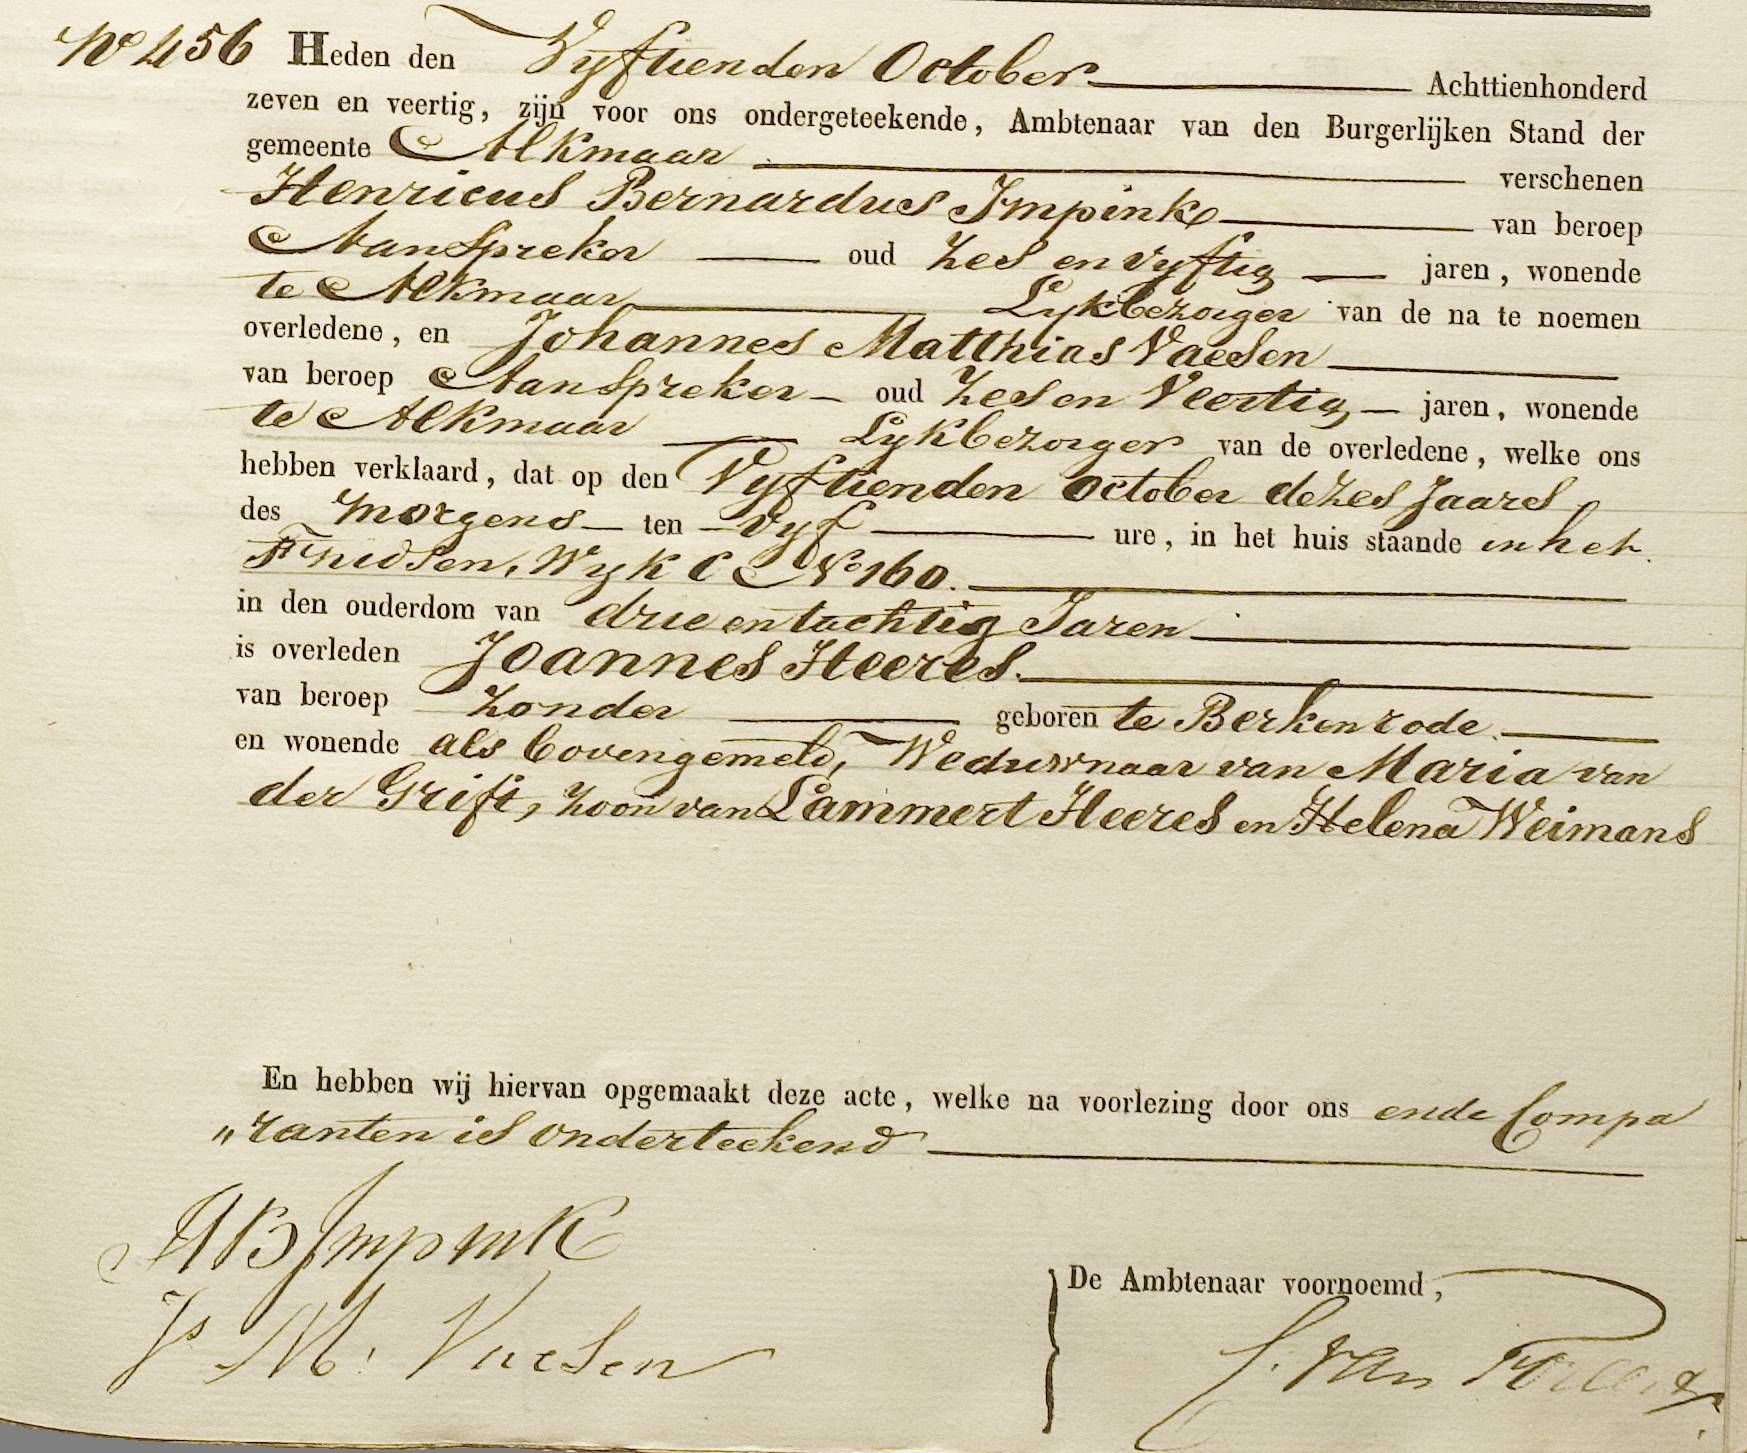 No 456 Heden den Vyftienden October Achttienhonderd
zeven en veertig, zijn voor ons ondergeteekende, Ambtenaar van den Burgerlijken Stand der
gemeente Alkmaar verschenen
Henricus Bernardus Impink van beroep
Aanspreker oud Zes en vyftig jaren, wonende
te Alkmaar Lykbezorger van de na te noemen
overledene, en Johannes Matthias Vaesen
van beroep Aanspreker oud Zes en Veertig jaren, wonende
te Alkmaar Lykbezorger van de overledene, welke ons
hebben verklaard, dat op den Vyftienden october dezes Jaares
des morgens ten vyf ure, in het huis staande in het
Fnidsen, Wyk C No 160.
in den ouderdom van drie en tachtig Jaren
is overleden Joannes Heeres.
van beroep Zonder geboren te Berkenrode
en wonende als bovengemeld, Weduwnaar van Maria van
der Grift, Zoon van Lammert Heeres en Helena Weimans
En hebben wij hiervan opgemaakt deze acte, welke na voorlezing door ons en de Compa
„ranten is onderteekend
HB Impink
Js M. Vaesen
De Ambtenaar voornoemd,
van